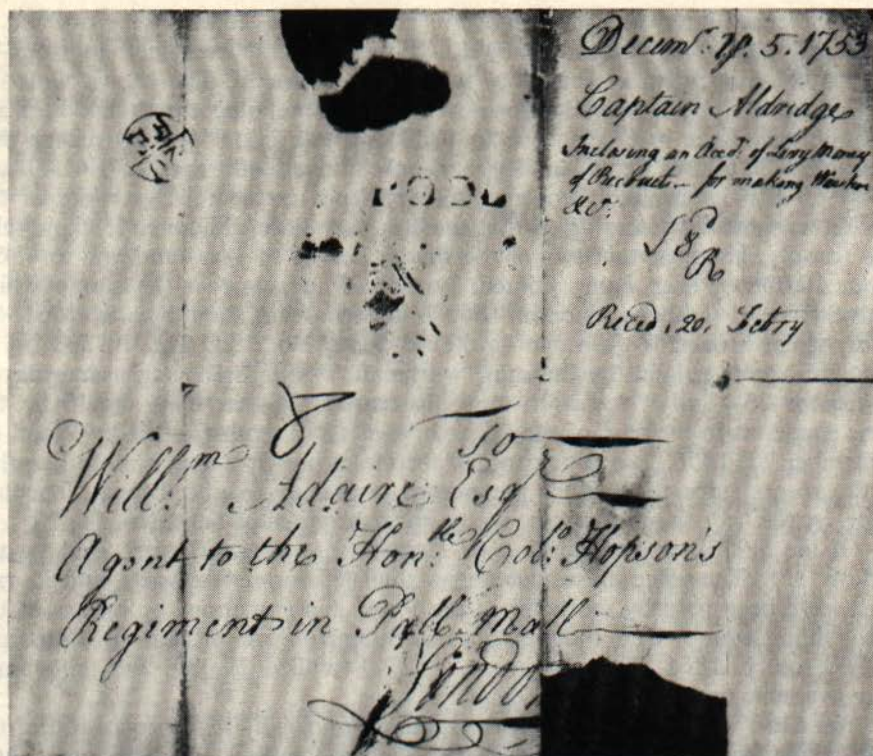 Decemr. ye. 5. 1753
Captain Aldridge
Inclosing an Acct. of Levy Money
of Recruits for making
&c.
Reced. 20. Febry
To
Willm. Adaire Esqr
Agent to the Honble Colo: Hopson's
Regiment in Pall Mall
London